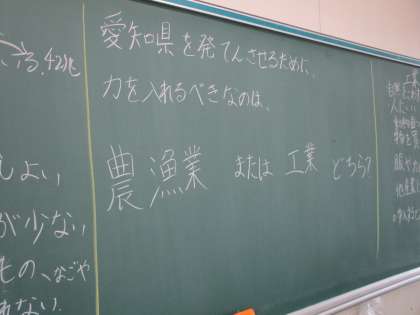 愛知県を発てんさせるために、
力を入れるべきなのは、
農漁業 または 工業 どちら?
しよい
が少ない
もの、なごや
れない.